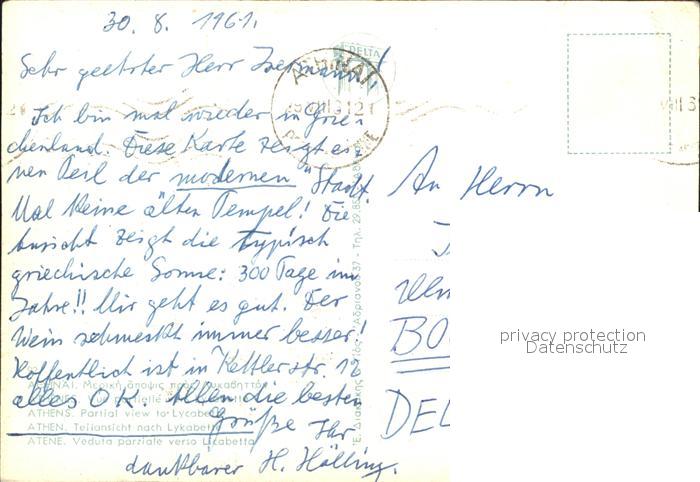 30. 8. 1961.
Sehr geehrter Herr
DELTA
Ich bin mal wieder in Grie-
chenland. Diese Karte zeigt ei-
nen Teil der modernen "Stadt".
Mal keine alten Tempel! Die
Ansicht zeigt die typisch
griechische Sonne: 300 Tage im
Jahre!! Mir geht es gut. Der
Wein schmeckt immer besser!
Hoffentlich ist in Kettlerstr. 12
alles O.K. Allen die besten
Grüße Ihr
dankbarer H. Hölling.
ΑΘΗΝΑΙ. Μερική άποψις πρός Λυκαβηττόν
ATHENS. Partial view to Lycabettus
ATHEN. Teilansicht nach Lykabettus
ATENE. Veduta parziale verso Licabetto
An Herrn
BO
DEU
privacy protection
Datenschutz